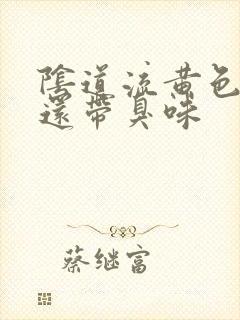 陰道流黄色
還帶臭味
蔡继富